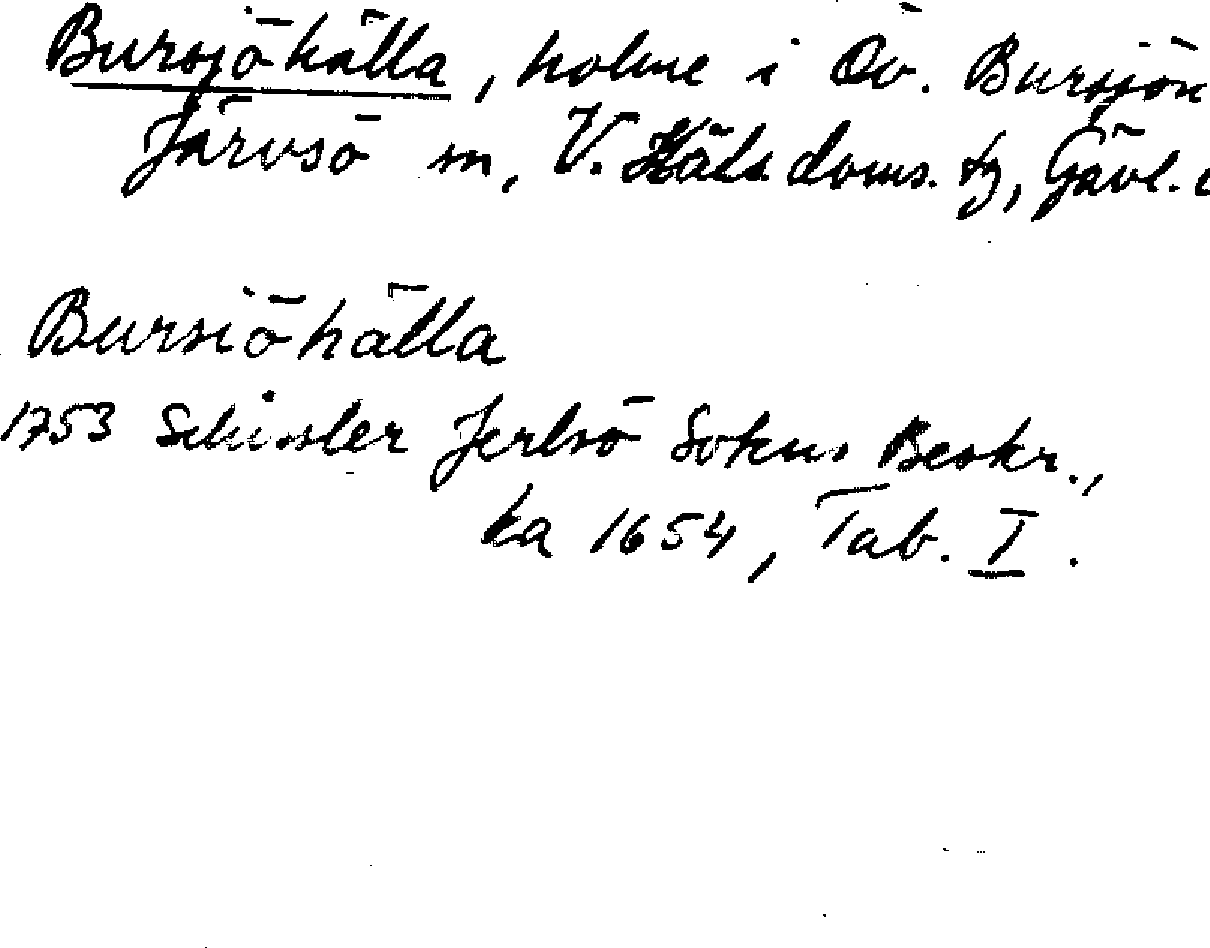 Bursjöhälla, holme i Öv. Bursjön
Järvsö sn, V. Häls. doms. tg, Gävl.
Bursiöhälla
1753 Schissler Jerlsö Sokns Beskr.,
ka 1654, Tab. I.